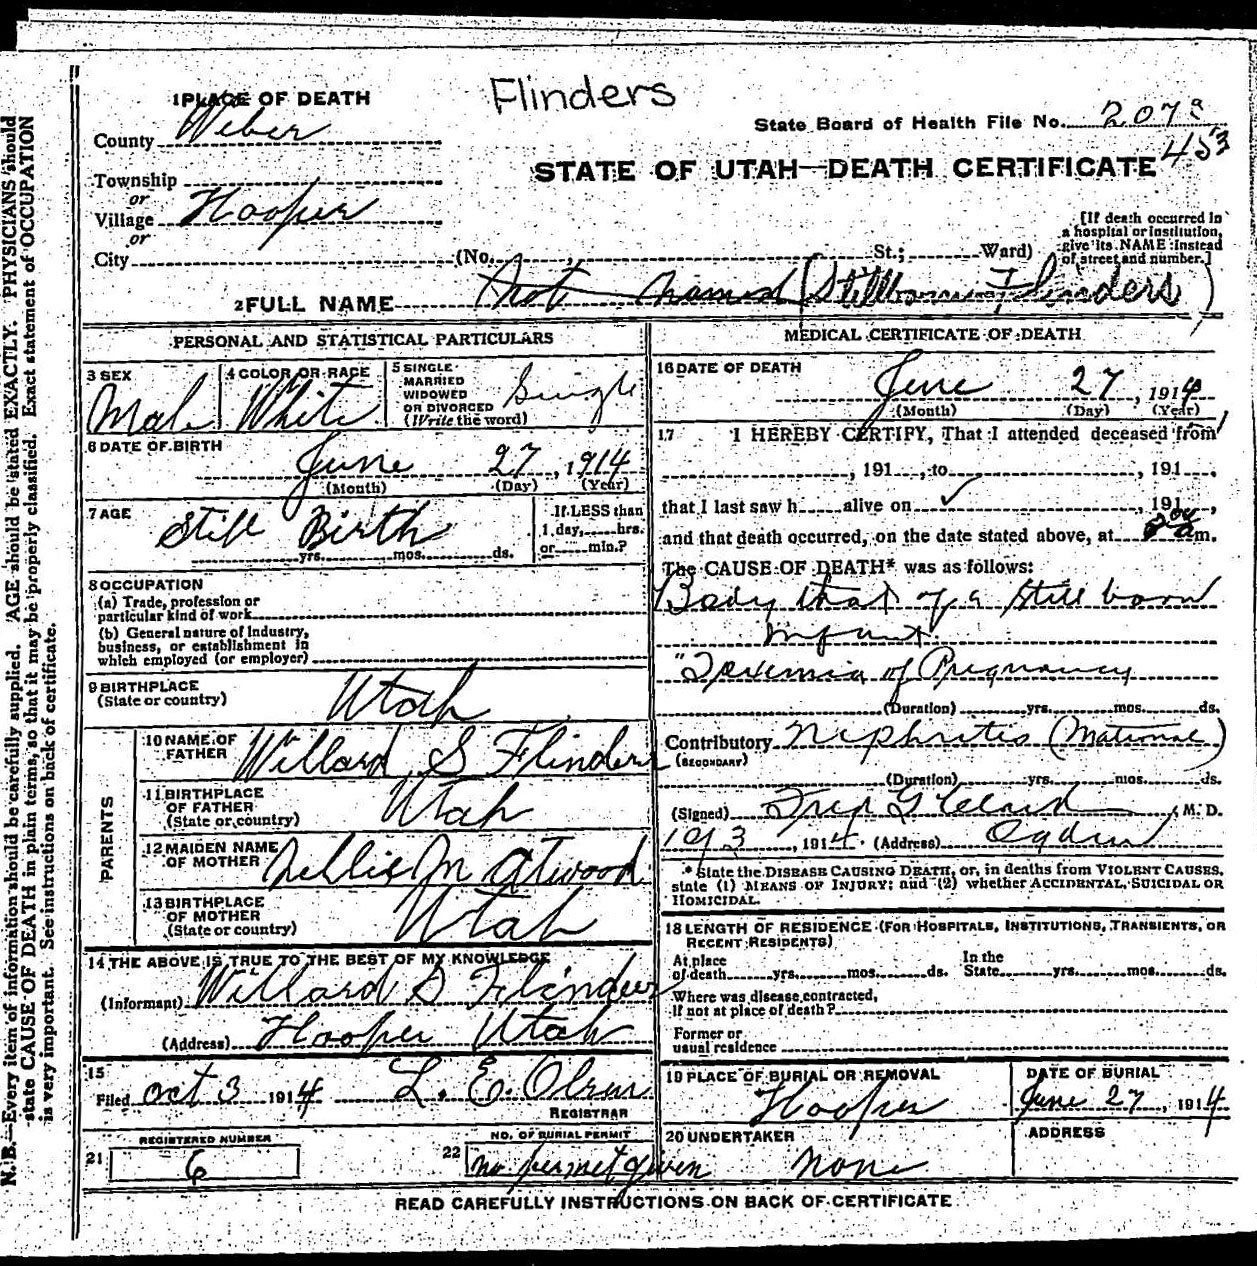 Flinders
1 PLACE OF DEATH
County Weber
State Board of Health File No. 207a
453
STATE OF UTAH—DEATH CERTIFICATE
Township
or
Village Hooper
or
City (No. , St.; Ward)
[If death occurred in
a hospital or institution,
give its NAME instead
of street and number.]
2 FULL NAME Not named (Stillborn Flinders)
PERSONAL AND STATISTICAL PARTICULARS
3 SEX
Male
4 COLOR OR RACE
White
5 SINGLE
MARRIED
WIDOWED
OR DIVORCED
(Write the word)
Single
6 DATE OF BIRTH
June 27, 1914
(Month) (Day) (Year)
7 AGE
Still Birth
yrs. mos. ds.
If LESS than
1 day, hrs.
or min.?
8 OCCUPATION
(a) Trade, profession or
particular kind of work
(b) General nature of Industry,
business, or establishment in
which employed (or employer)
9 BIRTHPLACE
(State or country)
Utah
PARENTS
10 NAME OF
FATHER
Willard S Flinders
11 BIRTHPLACE
OF FATHER
(State or country)
Utah
12 MAIDEN NAME
OF MOTHER
Nellie M Atwood
13 BIRTHPLACE
OF MOTHER
(State or country)
Utah
14 THE ABOVE IS TRUE TO THE BEST OF MY KNOWLEDGE
(Informant) Willard S Flinders
(Address) Hooper Utah
15
Filed Oct 3 1914 L. E. Olsen
REGISTRAR
REGISTERED NUMBER
21 6
NO. OF BURIAL PERMIT
22 no permet given
MEDICAL CERTIFICATE OF DEATH
16 DATE OF DEATH
June 27, 1914
(Month) (Day) (Year)
17 I HEREBY CERTIFY, That I attended deceased from
, 191 , to , 191 ,
that I last saw h alive on ✓ , 191 ,
and that death occurred, on the date stated above, at am.
The CAUSE OF DEATH* was as follows:
Body that of a still born
infant
"Toxemia of Pregnancy
(Duration) yrs. mos. ds.
Contributory Nephritis (Maternal)
(SECONDARY)
(Duration) yrs. mos. ds.
(Signed) , M. D.
10/3, 1914. (Address) Ogden
* State the DISEASE CAUSING DEATH, or, in deaths from VIOLENT CAUSES,
state (1) MEANS OF INJURY; and (2) whether ACCIDENTAL, SUICIDAL OR
HOMICIDAL.
18 LENGTH OF RESIDENCE (FOR HOSPITALS, INSTITUTIONS, TRANSIENTS, OR
RECENT RESIDENTS)
At place
of death yrs. mos. ds.
In the
State yrs. mos. ds.
Where was disease contracted,
If not at place of death?
Former or
usual residence
19 PLACE OF BURIAL OR REMOVAL
Hooper
DATE OF BURIAL
June 27, 1914
20 UNDERTAKER
none
ADDRESS
READ CAREFULLY INSTRUCTIONS ON BACK OF CERTIFICATE
N. B.—Every item of information should be carefully supplied. AGE should be stated EXACTLY. PHYSICIANS should
state CAUSE OF DEATH in plain terms, so that it may be properly classified. Exact statement of OCCUPATION
is very important. See instructions on back of certificate.